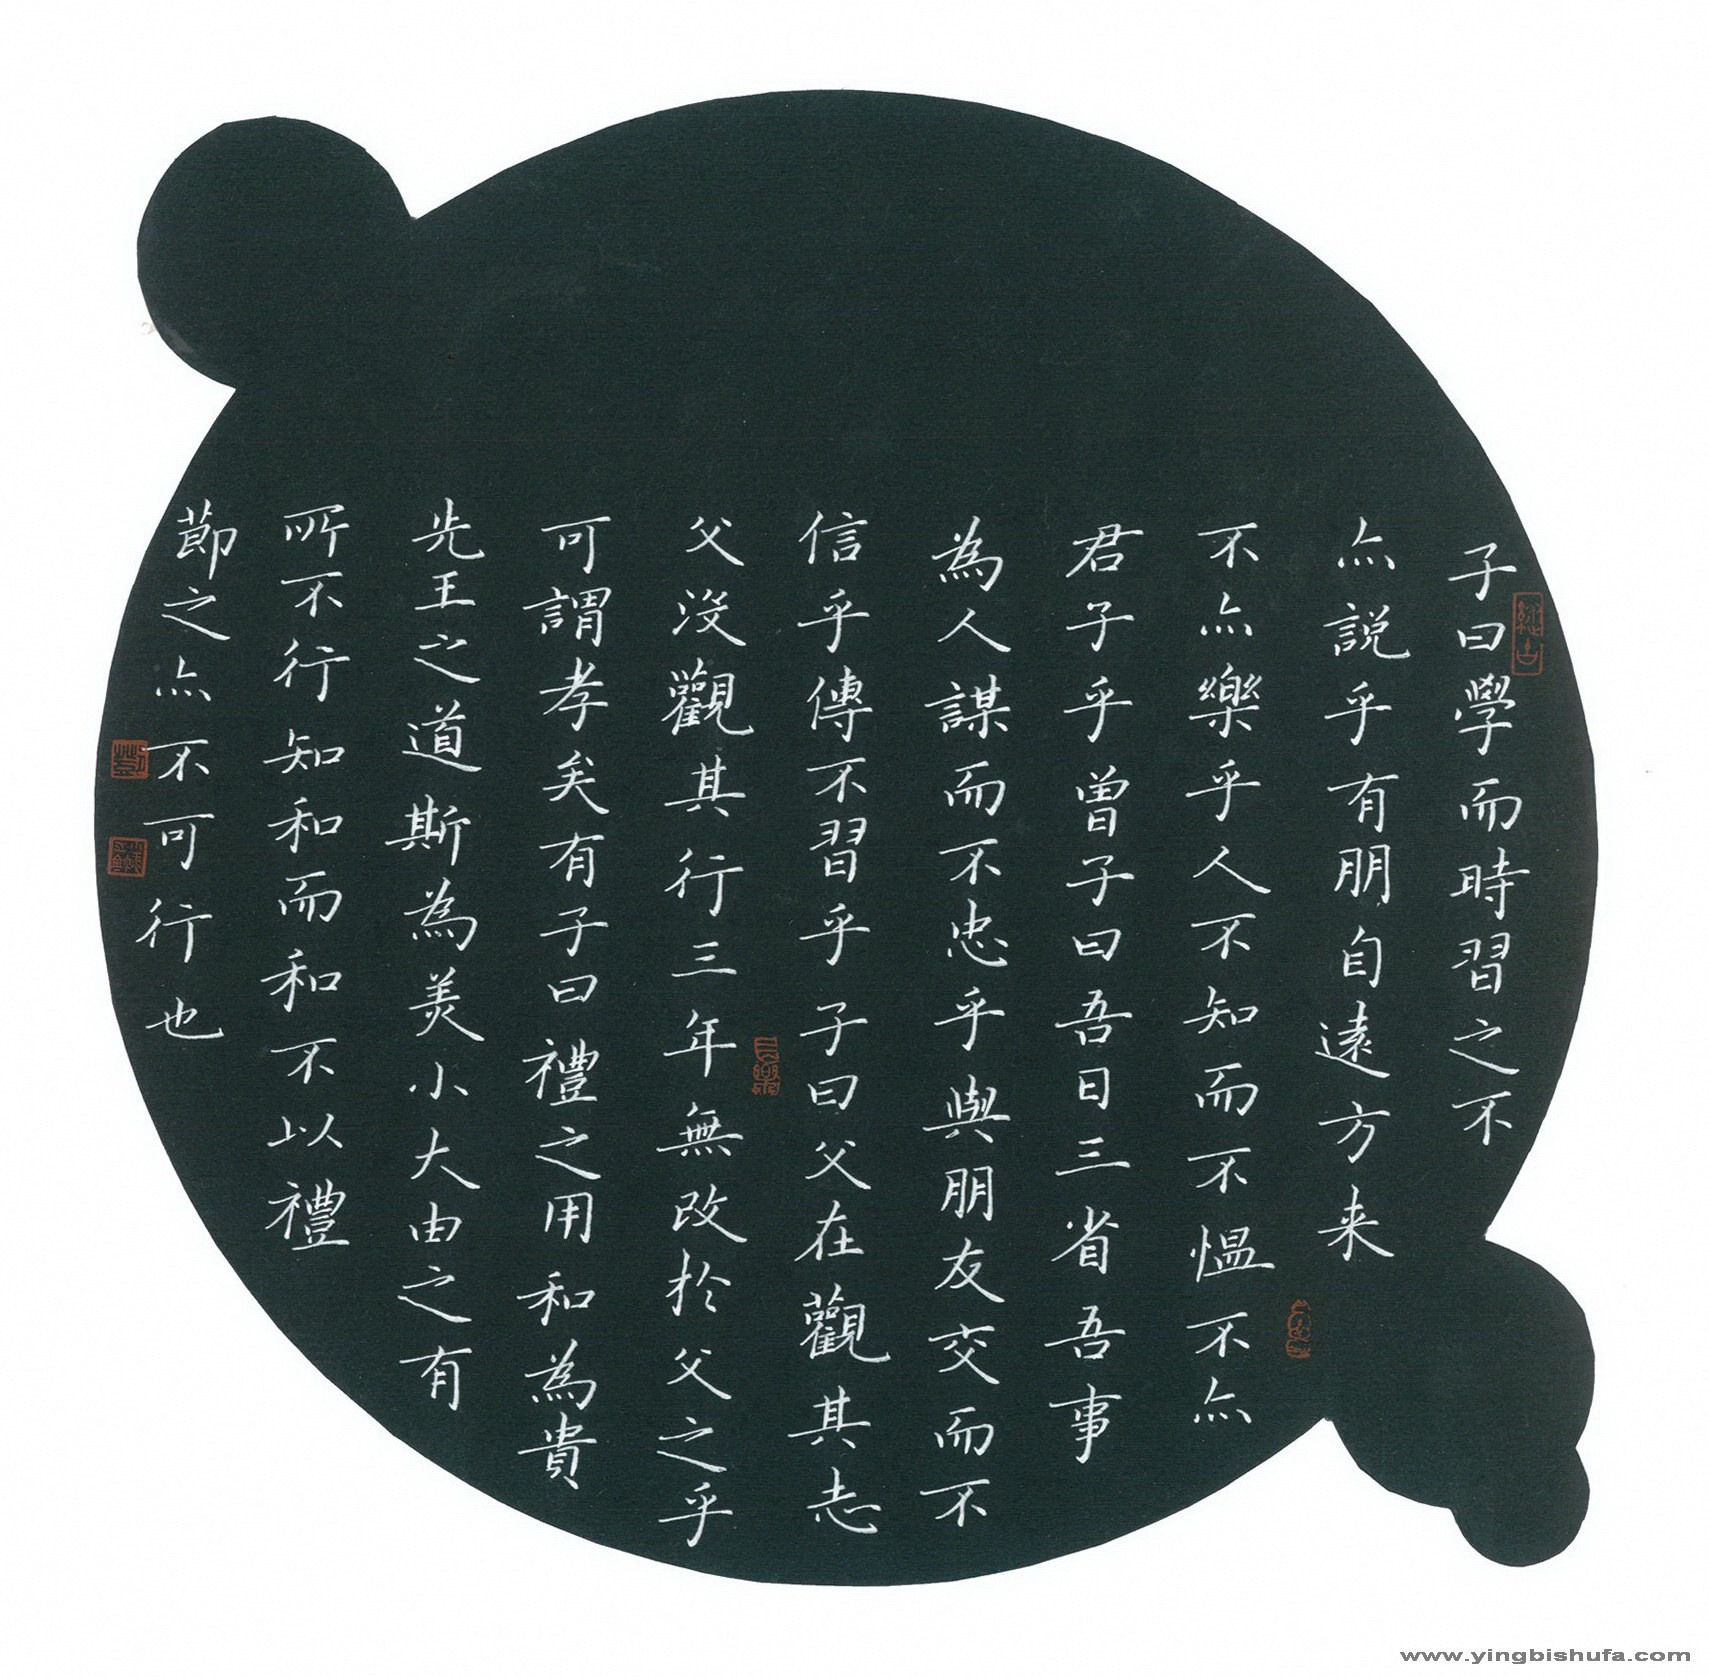 子曰學而時習之不
亦説乎有朋自遠方来
不亦樂乎人不知而不愠不亦
君子乎曾子曰吾日三省吾事
為人謀而不忠乎與朋友交而不
信乎傳不習乎子曰父在觀其志
父没觀其行三年無改於父之乎
可謂孝矣有子曰禮之用和為貴
先王之道斯為美小大由之有
所不行知和而和不以禮
節之亦不可行也
www.yingbishufa.com